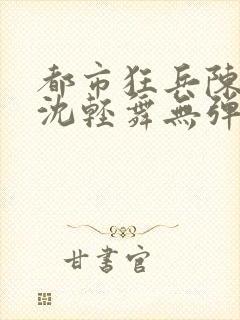 都市狂兵陳
沈輕舞無彈
甘書官